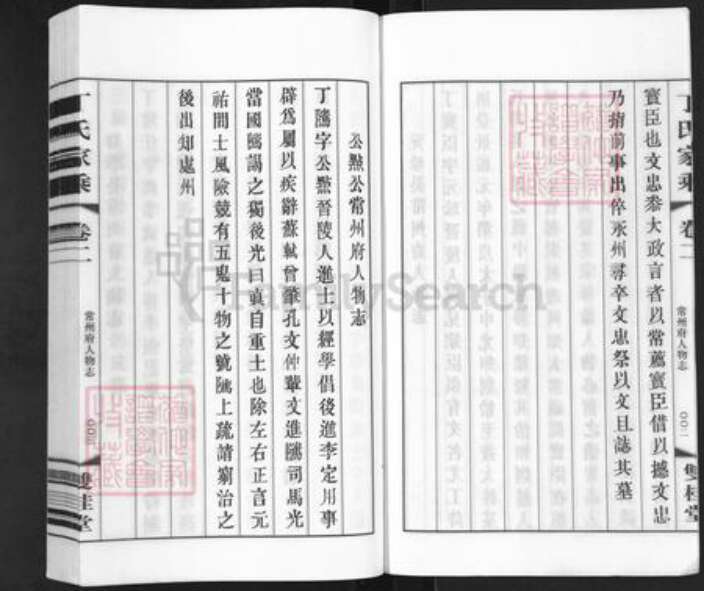 丁氏家乘 卷二
常州府人物志 〇〇二
雙桂堂
寶臣也文忠叅大政言者以常薦寶臣借以撼文忠
乃指前事出倅永州尋卒文忠祭以文且誌其墓
公黙公常州府人物志
丁隲字公黙晉陵人進士以經學倡後進李定用事
辟爲屬以疾辭蘇軾曾肇孔文仲輩交進隲司馬光
當國隲謁之獨後光曰眞自重士也除左右正言元
祐間士風險競有五鬼十物之號隲上疏請窮治之
後出知處州
丁氏家乘 卷二
常州府人物志 〇〇三
雙桂堂
FamilySearch